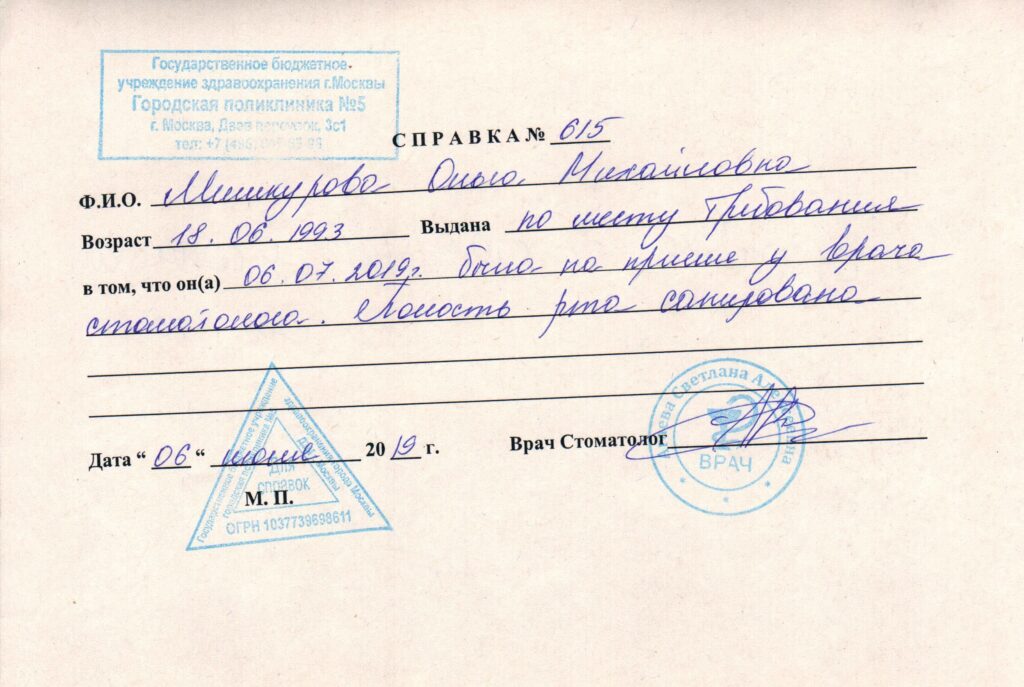 Государственное бюджетное
учреждение здравоохранения г.Москвы
Городская поликлиника №5
г. Москва, 3с1
тел: +7
СПРАВКА № 615
Ф.И.О. Мишкурова Ольга Михайловна
Возраст 18.06.1993 Выдана по месту требования
в том, что он(а) 06.07.2019г. была на приёме у врача
стоматолога. Полость рта санирована
Дата “ 06 “ июля 20 19 г.
Врач Стоматолог
М. П.
Государственное бюджетное учреждение
здравоохранения города Москвы
ДЛЯ
СПРАВОК
ОГРН 1037739698611
Светлана
ВРАЧ